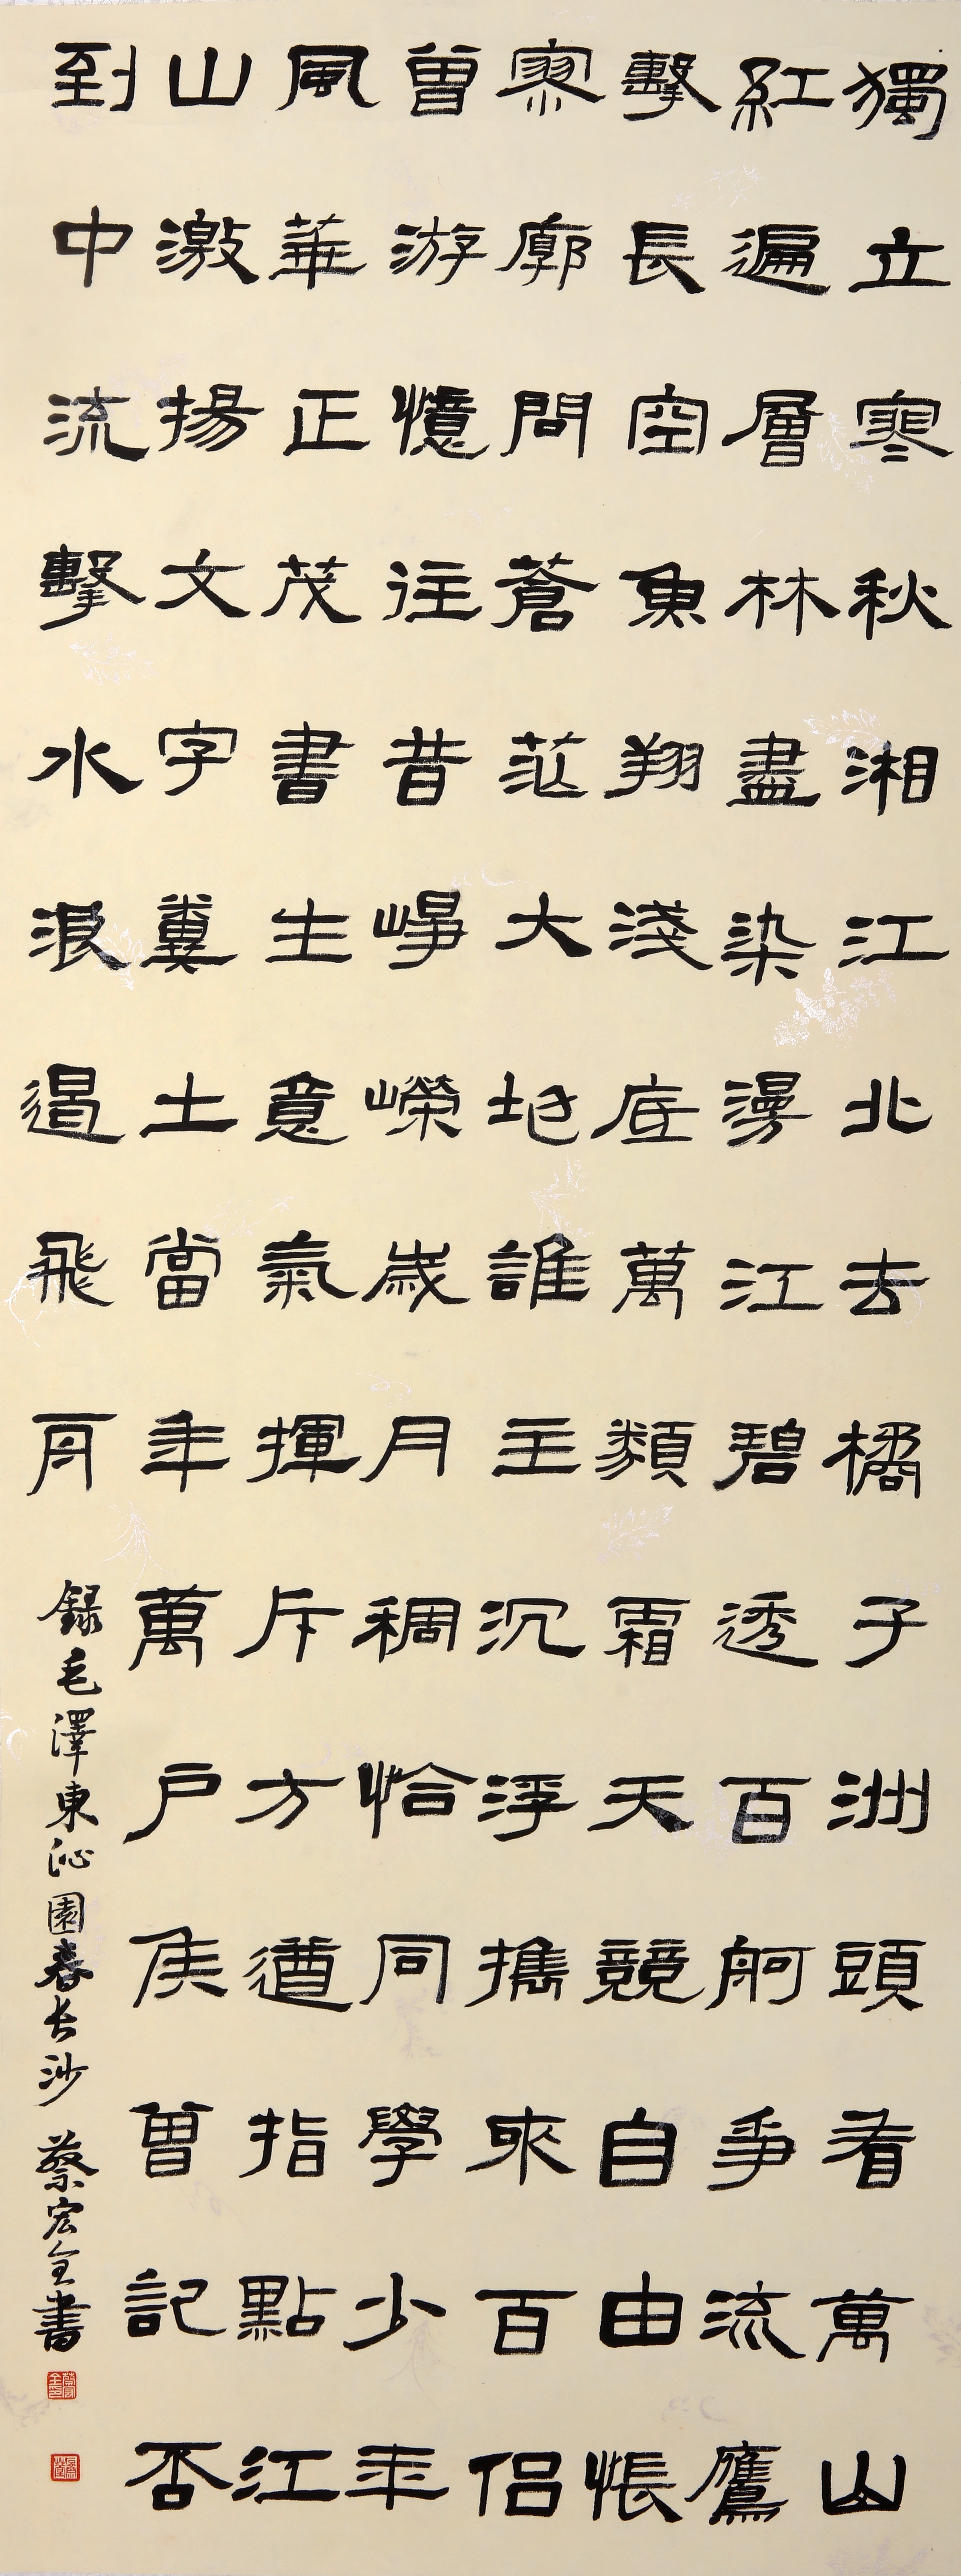 獨立寒秋湘江北去橘子洲頭看萬山
紅遍層林盡染漫江碧透百舸爭流鷹
擊長空魚翔淺底萬類霜天競自由悵
寥廓問蒼茫大地誰主沉浮攜來百侶
曾游憶往昔崢嶸歲月稠恰同學少年
風華正茂書生意氣揮斥方遒指點江
山激揚文字糞土當年萬戶侯曾記否
到中流擊水浪遏飛舟
錄毛澤東沁園春长沙 蔡宏全書